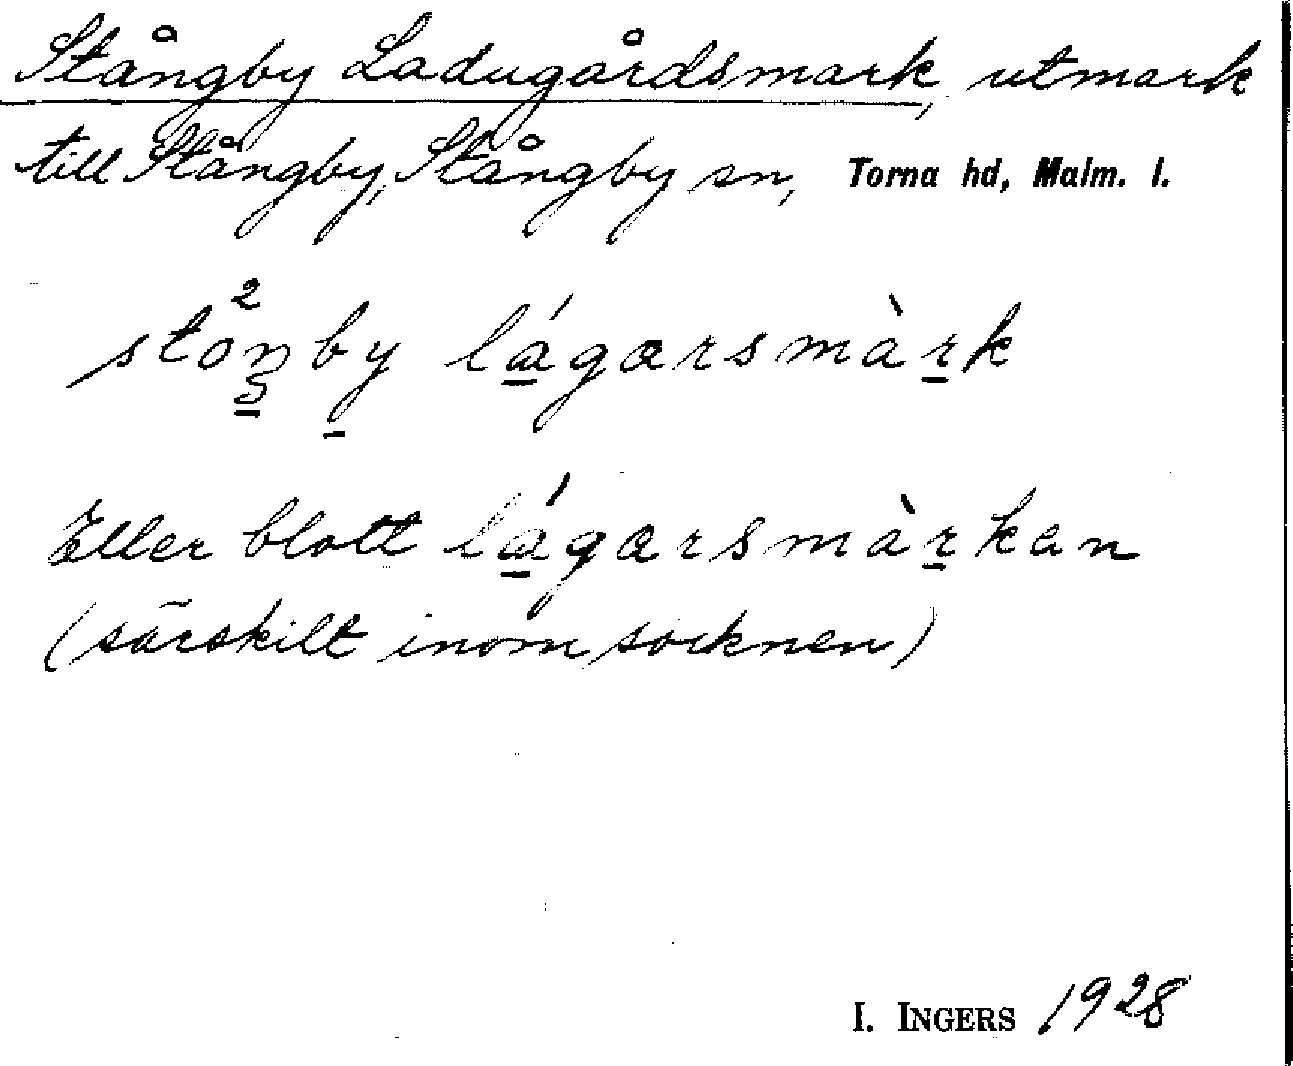 Stångby Ladugårdsmark, utmark
till Stångby, Stångby sn, Torna hd, Malm. l.
stå²ŋby lágarsmàrk
Eller blott lágarsmàrkan
(särskilt inom socknen)
I. INGERS 1928